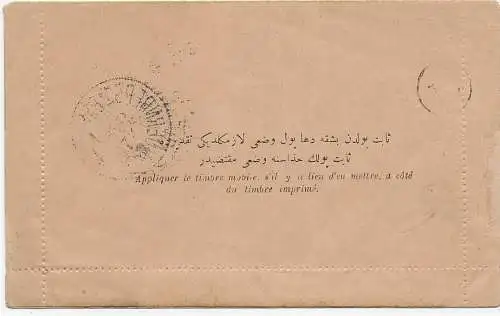 ثابت پولدن بشقه دها پول وضعی لازمكلدیكی تقدیرده
ثابت پولك حذاسنه وضعی مقتضیدر
Appliquer le timbre mobile, s'il y a lieu d'en mettre, a côté
du timbre imprimé.